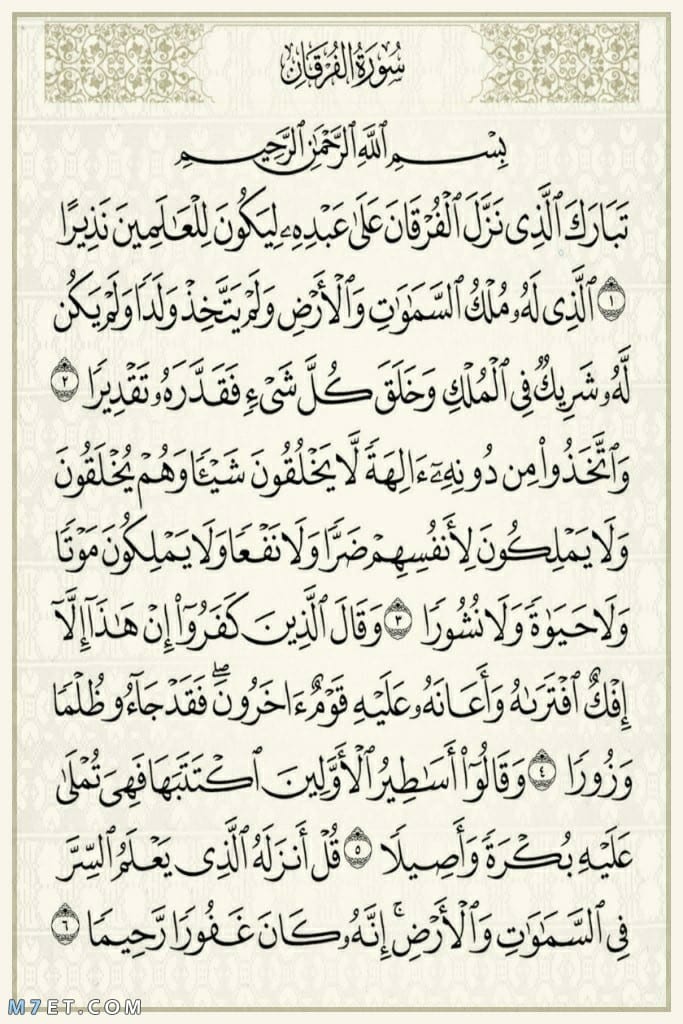 سُورَةُ الفُرْقَانِ
بِسْمِ ٱللَّهِ ٱلرَّحْمَٰنِ ٱلرَّحِيمِ
تَبَارَكَ ٱلَّذِى نَزَّلَ ٱلْفُرْقَانَ عَلَىٰ عَبْدِهِۦ لِيَكُونَ لِلْعَٰلَمِينَ نَذِيرًا
١ ٱلَّذِى لَهُۥ مُلْكُ ٱلسَّمَٰوَٰتِ وَٱلْأَرْضِ وَلَمْ يَتَّخِذْ وَلَدًا وَلَمْ يَكُن
لَّهُۥ شَرِيكٌ فِى ٱلْمُلْكِ وَخَلَقَ كُلَّ شَىْءٍ فَقَدَّرَهُۥ تَقْدِيرًا ٢
وَٱتَّخَذُوا۟ مِن دُونِهِۦٓ ءَالِهَةً لَّا يَخْلُقُونَ شَيْـًٔا وَهُمْ يُخْلَقُونَ
وَلَا يَمْلِكُونَ لِأَنفُسِهِمْ ضَرًّا وَلَا نَفْعًا وَلَا يَمْلِكُونَ مَوْتًا
وَلَا حَيَوٰةً وَلَا نُشُورًا ٣ وَقَالَ ٱلَّذِينَ كَفَرُوٓا۟ إِنْ هَٰذَآ إِلَّآ
إِفْكٌ ٱفْتَرَىٰهُ وَأَعَانَهُۥ عَلَيْهِ قَوْمٌ ءَاخَرُونَ ۖ فَقَدْ جَآءُو ظُلْمًا
وَزُورًا ٤ وَقَالُوٓا۟ أَسَٰطِيرُ ٱلْأَوَّلِينَ ٱكْتَتَبَهَا فَهِىَ تُمْلَىٰ
عَلَيْهِ بُكْرَةً وَأَصِيلًا ٥ قُلْ أَنزَلَهُ ٱلَّذِى يَعْلَمُ ٱلسِّرَّ
فِى ٱلسَّمَٰوَٰتِ وَٱلْأَرْضِ ۚ إِنَّهُۥ كَانَ غَفُورًا رَّحِيمًا ٦
M7ET.COM